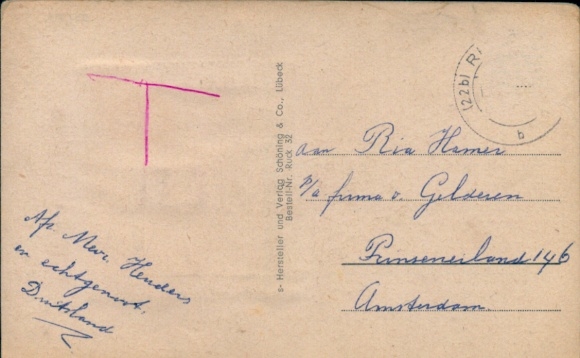 T
Af. Mevr. Henders
en echtgenoot,
Duitsland
s- Hersteller und Verlag Schöning & Co., Lübeck
Bestell-Nr. Ruck 32
(22b) R
b
aan Ria Hamer
p/a firma v. Gelderen
Prinseneiland 146
Amsterdam.